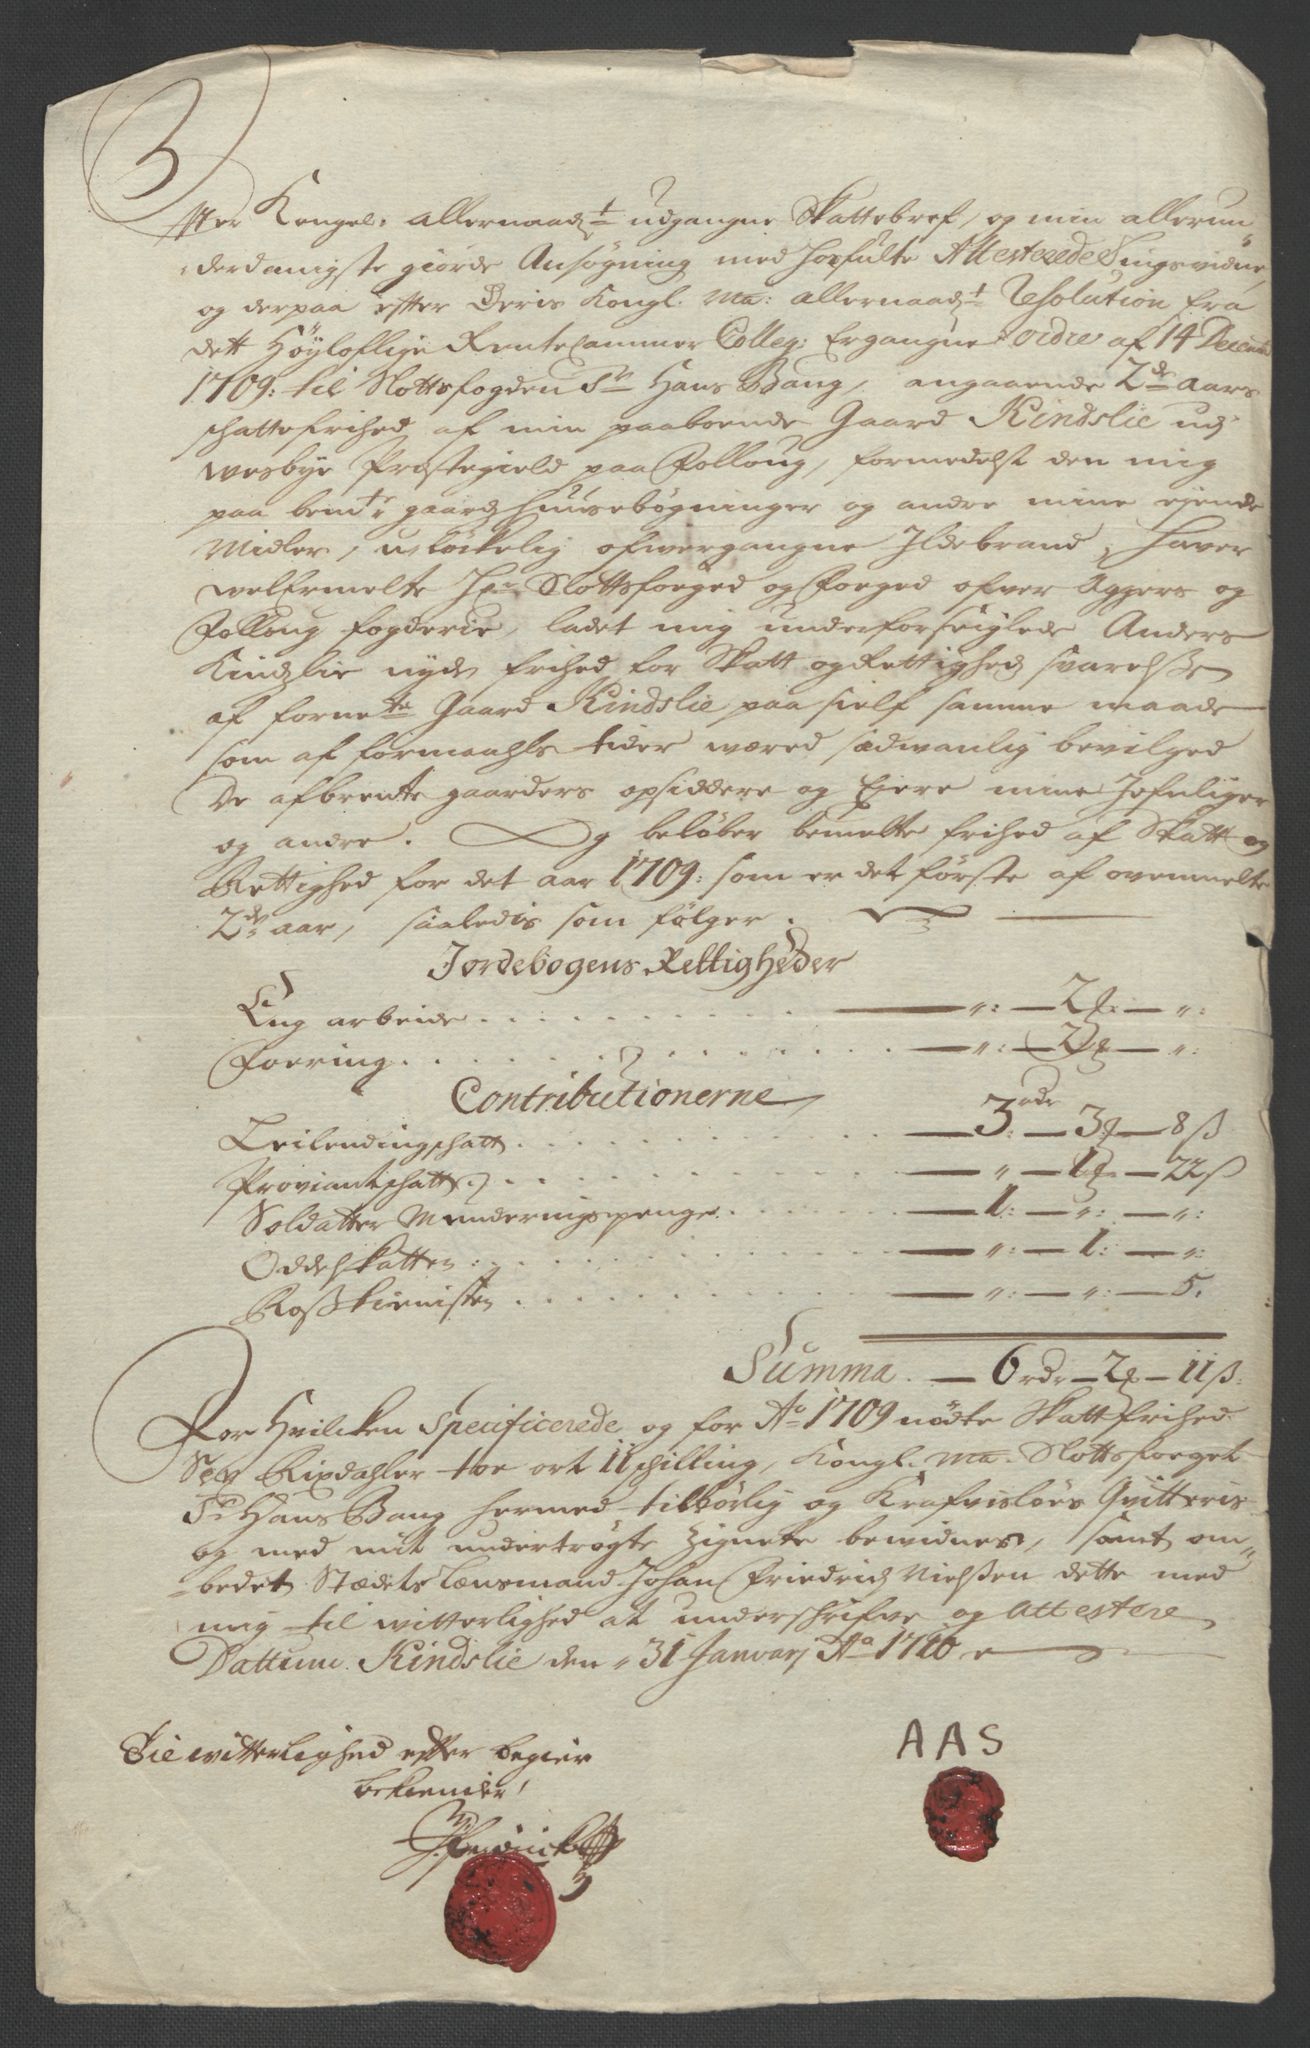 Efter Kongel: allernaadst udgangne Skattebref, og min allerun
derdanigste giorde Ansøgning med Hosfulte Attesterede Tingsvidne,
og derpaa efter Deris Kongl. Ma: allernaadst Resolution fra
dett Høyloflige Rentecammer Colleg: Ergangne ordre af 14 Decembr
1709: til Slottsfogden Sr Hans Bang, angaaende 2de aars
schattefrihed af min paaboende Gaard Kindslie udj
Wesbye Præstegield paa Folloug, formedelst den mig
paa bemte gaards huusebögninger og andre mine ejende
Midler, ulöckelig ofwergangne Ildebrand, haver
welbemelte Hr Slottsfoeged og Foeged ofver Aggers og
Folloug fogderie, ladet mig underforseiglede Anders
Kindslie nyde frihed for Skatt og Rettighed svarelsse
af fornefnte Gaard Kindslie paa sielf samme maade
som af formaahls tider wæred sædwanlig bevilged
De afbrente gaarders opsiddere og Eiere mine Jefnliger
og andre. Og beløber bemelte frihed af Skatt og
Rettighed for det aar 1709: som er det första af ovenmelte
2de aar, saaledis som følger.
Jordebogens Rettigheder
Eng arbeide . . . ": 2 ": 
Foering . . . ": 2 ":
Contributionerne
Leilendingschatt . . . 3 rdr 3 8 ß
Proviantschatt . . . " 1 22 ß
Soldatter Munderingspenge . . . 1: ": ":
Oddelskatten . . . ": 1: ":
Rosstienisten . . . ": ": 5.
Summa. 6 rdr 2 11 ß:
For Hvilcken Specificerede og for Ao 1709 nødte Skattfrihed
Sex Rixdahler toe ort 11 schilling, Kongl. Ma. Slottsfoeget
Sr Hans Bang hermed tilbörlig og Krafvislöes Qvitteris
og med mit undertrögte Zignete bewidnes, samt om
bedet Stædets Lænsmand Johan Friedrich Nielsen dette med
mig til witterlighed at underschrifve og Attestere
Dattum Kindslie den 31 Januarj Ao 1710
Tie witterlighed efter begier
bekiender
AAS